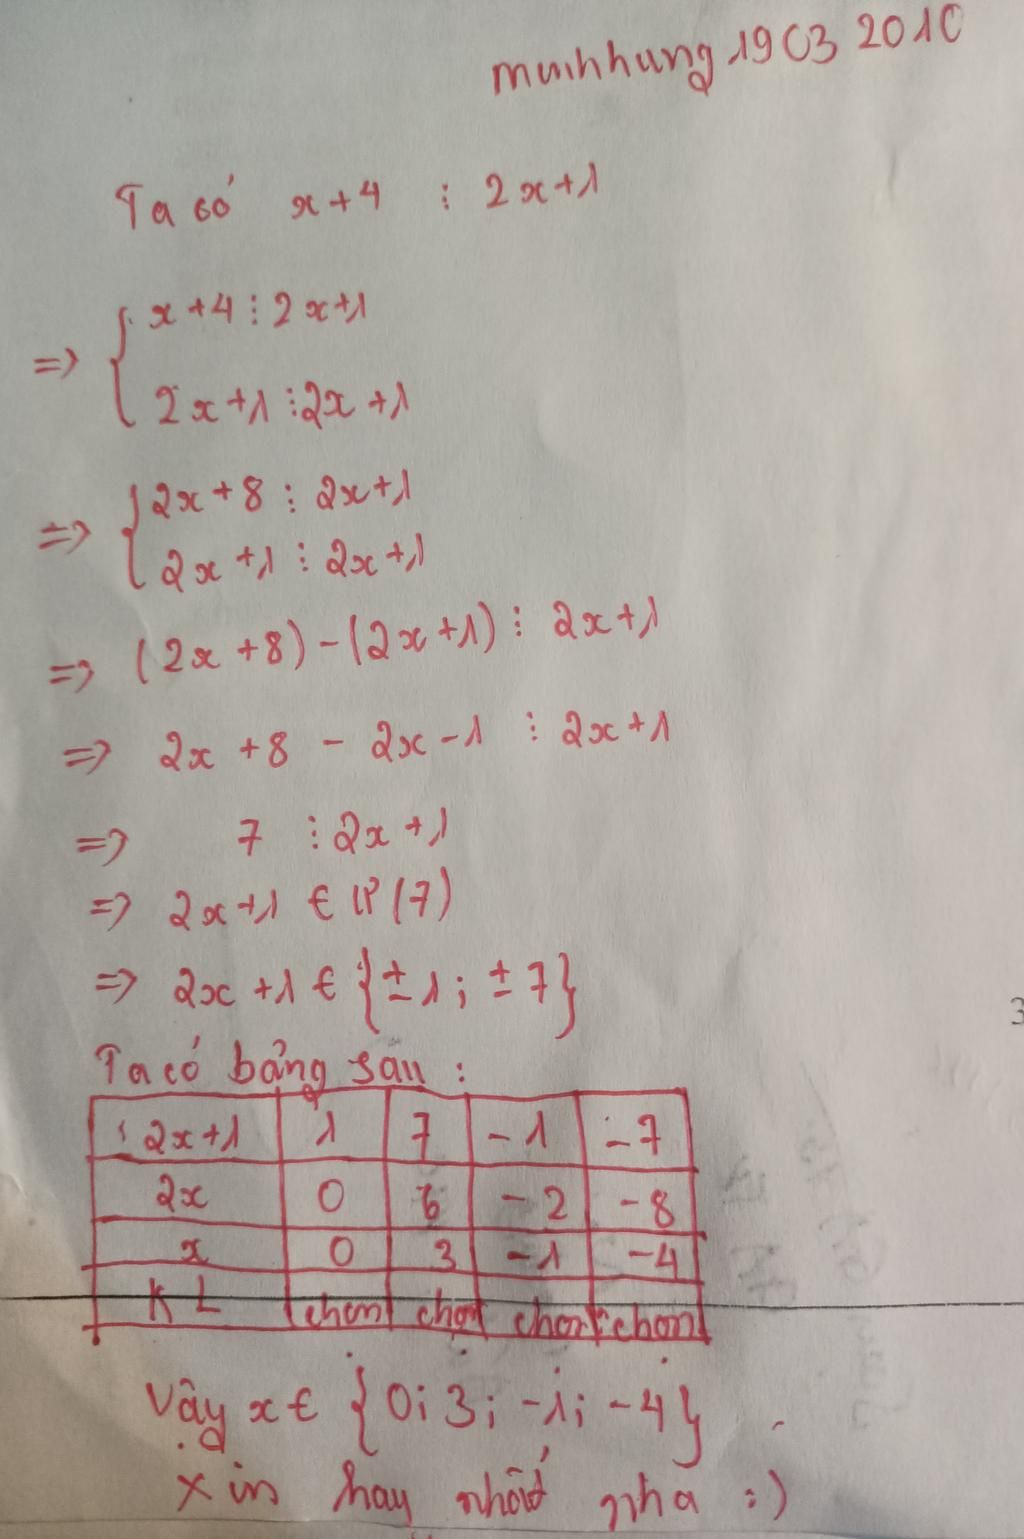 minhhung 19 03 2010
Ta có x+4 ⋮ 2x+1
=> { x+4 ⋮ 2x+1
2x+1 ⋮ 2x+1
=> { 2x+8 ⋮ 2x+1
2x+1 ⋮ 2x+1
=> (2x+8)-(2x+1) ⋮ 2x+1
=> 2x+8 - 2x-1 ⋮ 2x+1
=> 7 ⋮ 2x+1
=> 2x+1 € Ư(7)
=> 2x+1 € {±1; ±7}
Ta có bảng sau:
2x+1 1 7 -1 -7
2x 0 6 -2 -8
x 0 3 -1 -4
KL chọn chọn chọn chọn
Vậy x € {0; 3; -1; -4}
xin hay nhất nha :)
3